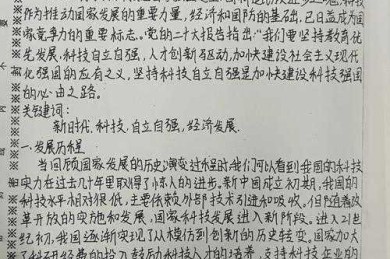 作为推动国家发展的重要力量,经济和国防的基础,已日益成为国
家竞争力的重要标志。党的二十大报告指出:“我们要坚持教育优
先发展、科技自立自强、人才引领驱动,加快建设社会主义现代
化强国的应有之义,坚持科技自立自强是加快建设科技强国
的必由之路。
关键词:
新时代、科技、自立自强、经济发展.
一.发展历程
当回顾国家发展的历史演变过程时,我们可以看到我国的科技
实力在过去几十年里取得了惊人的进步。新中国成立初期,我国的
科技水平相对很低,主要依赖外部技术引进和吸收。但随着改
革开放的实施和发展,国家科技发展进入新阶段。进入21世
纪初,我国逐渐实现了从模仿到创新的历史转变。国家加大
了科研经费的投入,鼓励科技人才的培养,支持科技企业的